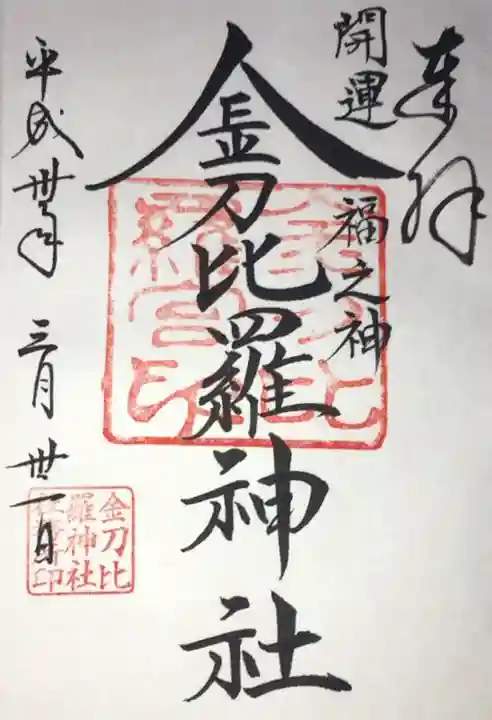 奉拝
開運 福之神
金刀比羅神社
平成卅年 三月卅一日
金刀比
羅神社